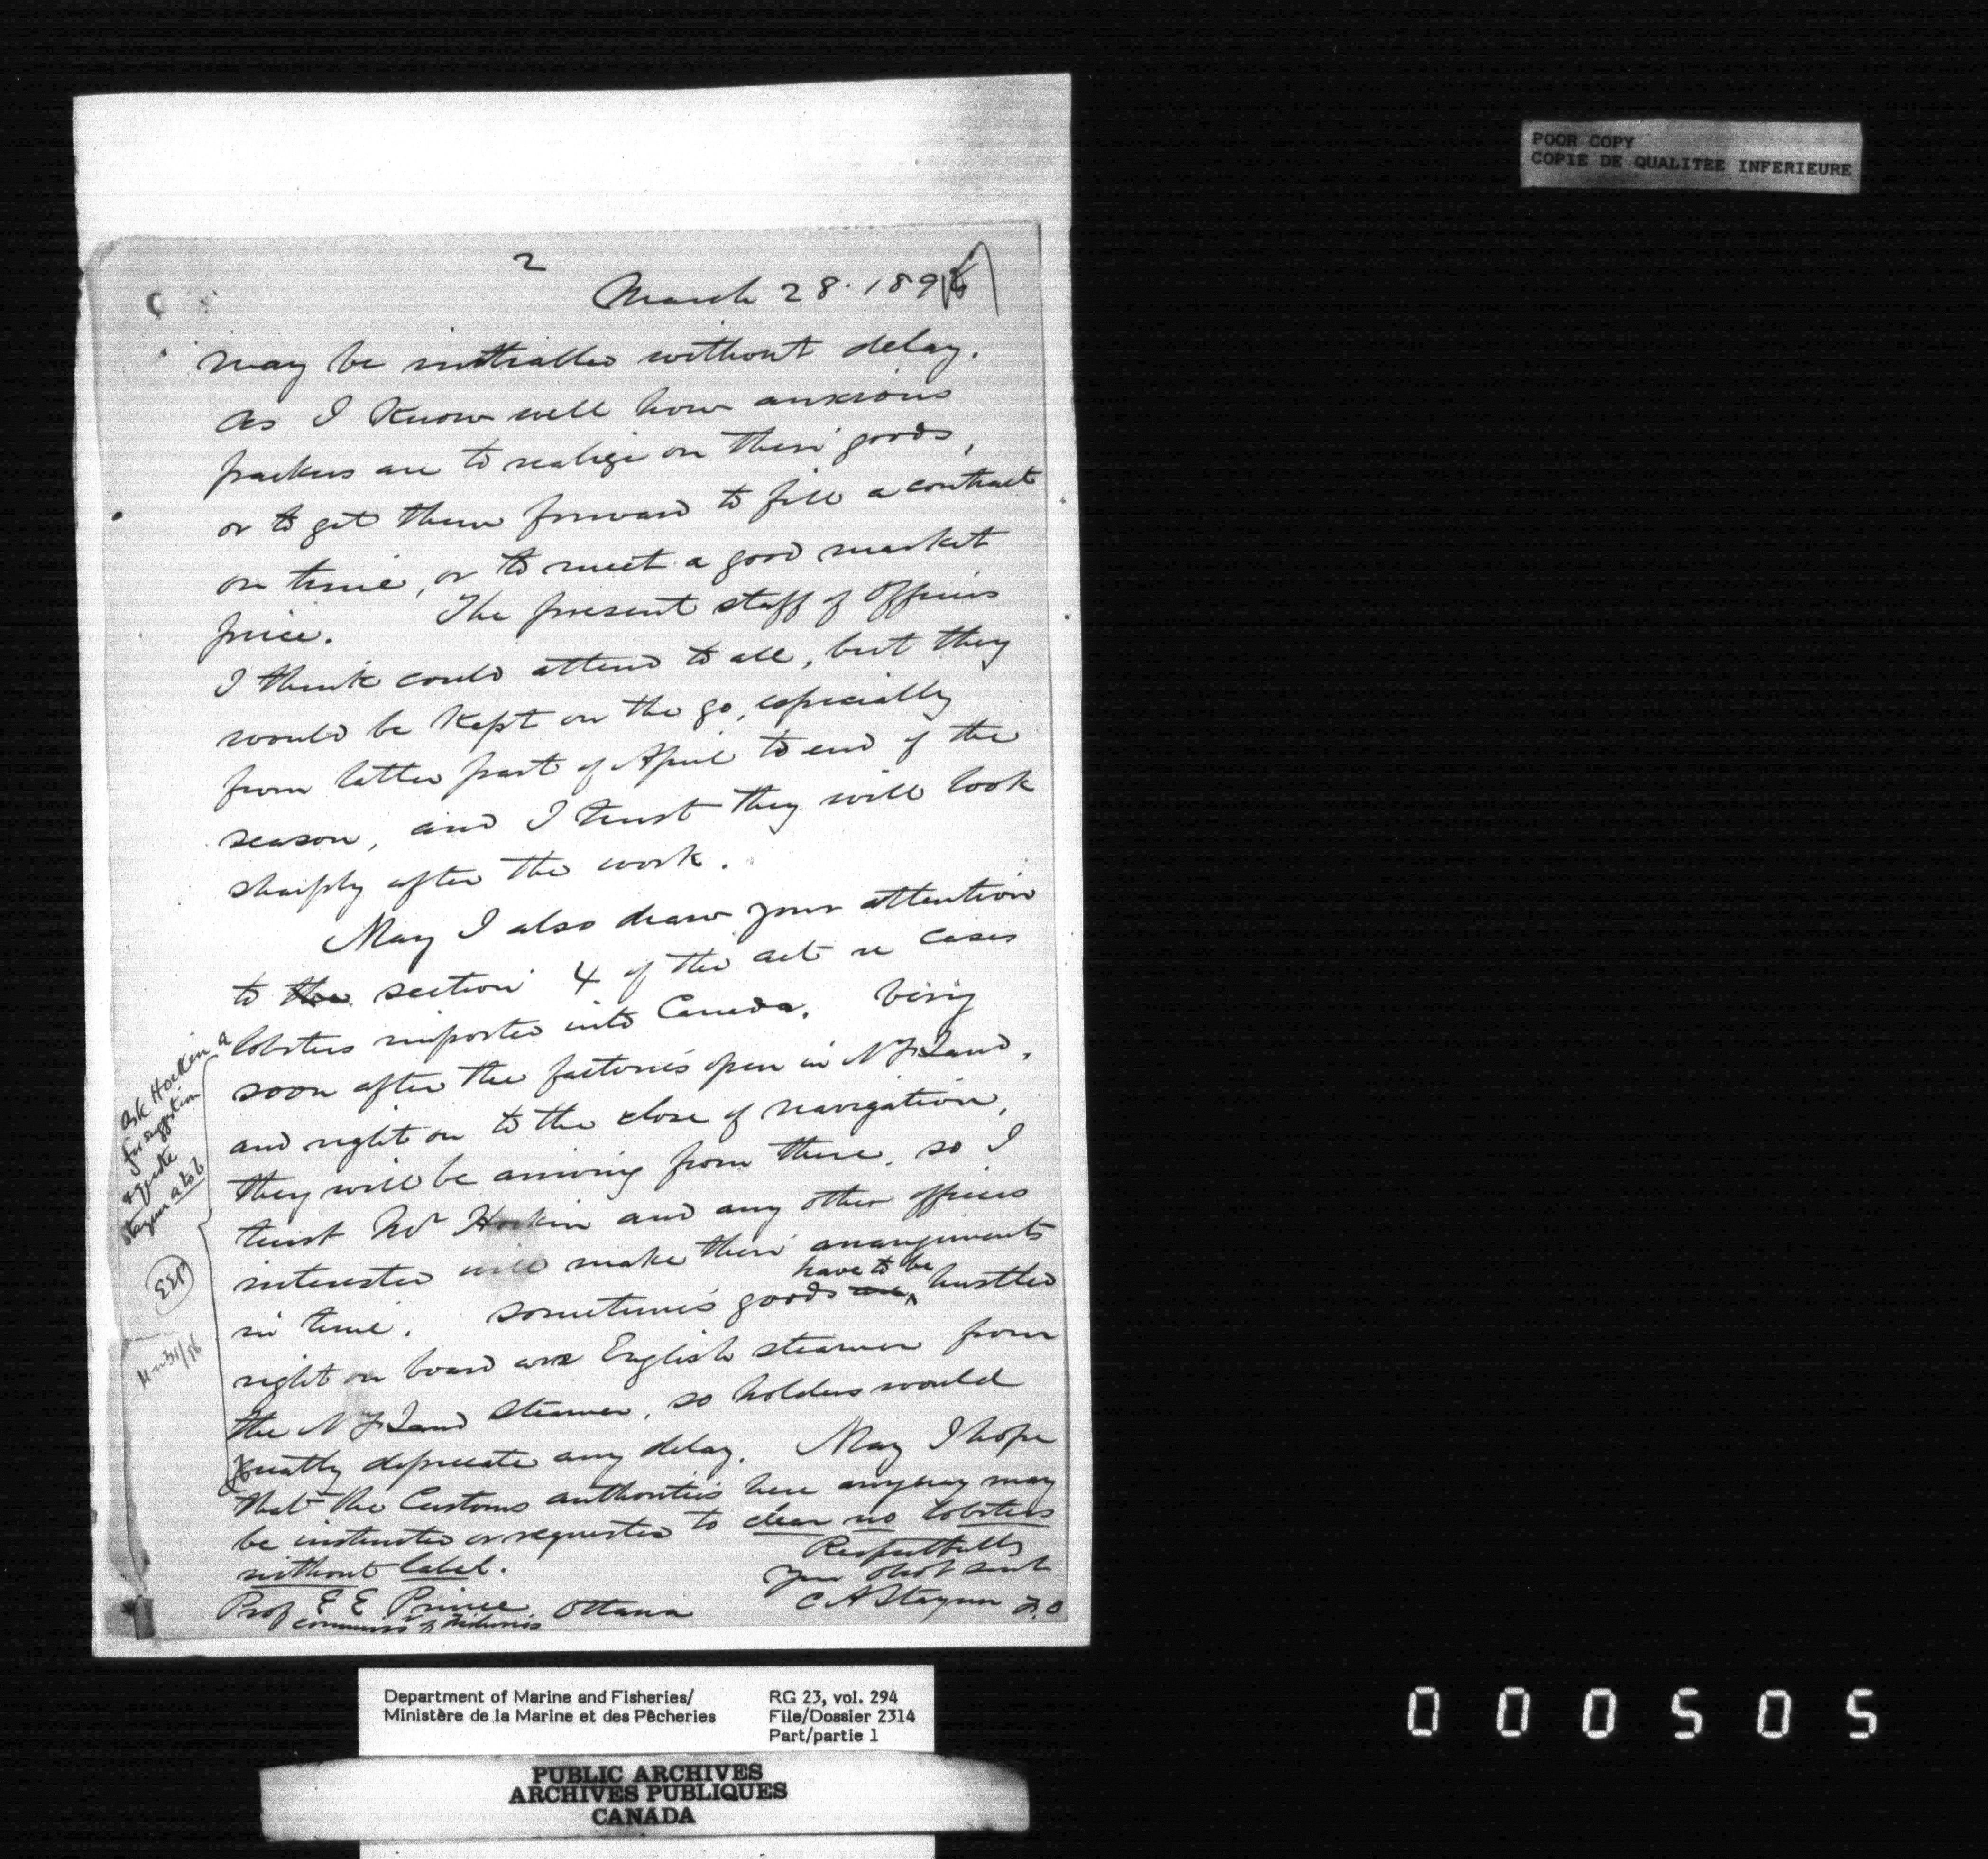 POOR COPY
COPIE DE QUALITEE INFERIEURE
2
March 28. 1896
may be initialled without delay.
As I know well how anxious
packers are to realize on their goods,
or to get them forward to fill a contract
on time, or to meet a good market
price. The present staff of Officers
I think could attend to all, but they
would be kept on the go, especially
from latter part of April to end of the
season, and I trust they will look
sharply after the work.
May I also draw your attention
to the section 4 of the act re cases
lobsters imported into Canada. Very
soon after the factories open in NFLand,
and right on to the close of navigation,
they will be arriving from there, so I
trust Mr Hockin and any other officers
interested will make their arrangements
in time. Sometimes goods are have to be hustled
right on board an English steamer from
the NFLand steamer, so holders would
greatly deprecate any delay. May I hope
that the Customs authorities here anyway may
be instructed or requested to clear no lobsters
without label.
Respectfully
Your obdt servt
C A Stayner F.O
Prof E E Prince
Commissr of Fisheries Ottawa
a
Ask Hockin
for suggestion
& quote
Stayner a to b
EEP
Mar 31/96
Department of Marine and Fisheries/
Ministère de la Marine et des Pêcheries
RG 23, vol. 294
File/Dossier 2314
Part/partie 1
PUBLIC ARCHIVES
ARCHIVES PUBLIQUES
CANADA
000505